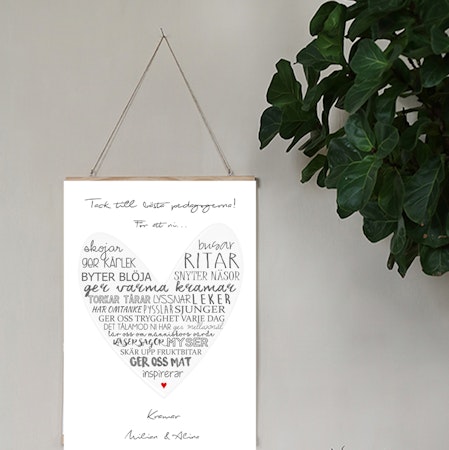 Tack till bästa pedagogerna!
För att ni...
skojar busar
GER KÄRLEK RITAR
BYTER BLÖJA SNYTER NÄSOR
ger varma kramar
TORKAR TÅRAR LYSSNAR LEKER
HAR OMTANKE PYSSLAR SJUNGER
GER OSS TRYGGHET VARJE DAG
DET TÅLAMOD NI HAR ger mellanmål
lär oss om människors värde
LÄSER SAGOR MYSER
SKÄR UPP FRUKTBITAR
GER OSS MAT
inspirerar
Kramar